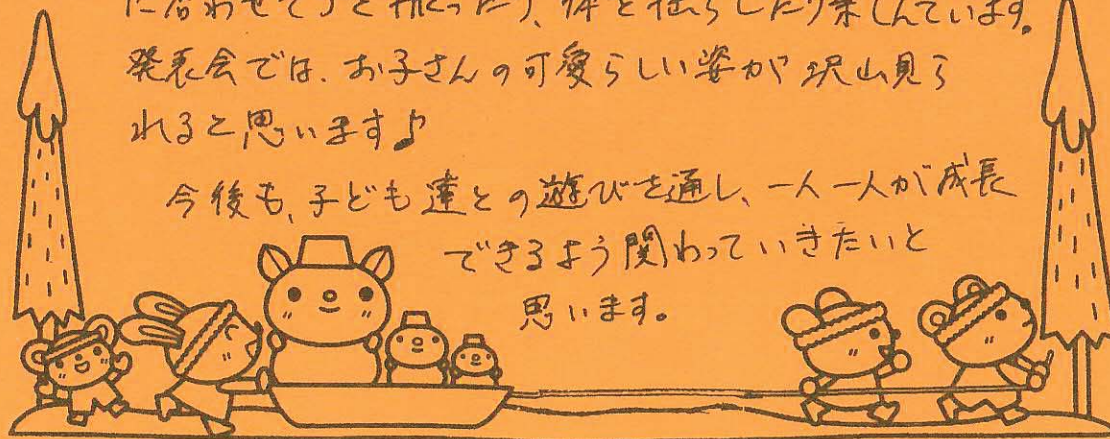 に合わせて手を振ったり、体を揺らしたり楽しんでいます。
発表会では、お子さんの可愛らしい姿が沢山見ら
れると思います♪
今後も、子ども達との遊びを通し、一人一人が成長
できるよう関わっていきたいと
思います。